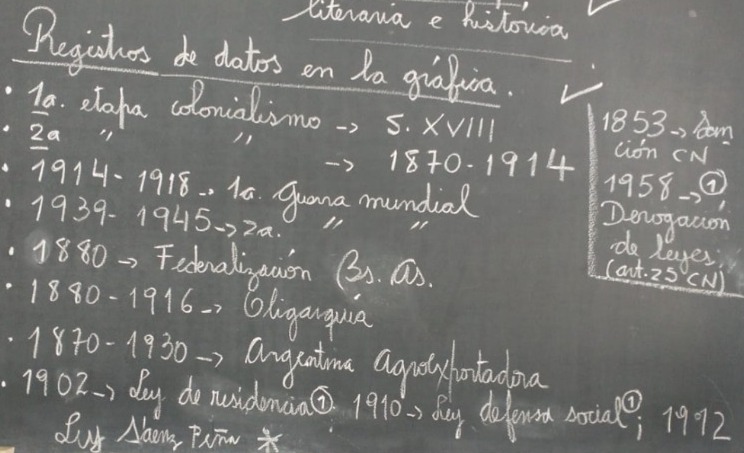 literaria e historica
Registros de datos en la gráfica.
• 1a. etapa colonialismo -> S. XVIII
• 2a " " -> 1870-1914
• 1914-1918 -> 1a. guerra mundial
• 1939-1945 -> 2a. " "
• 1880 -> Federalización Bs. As.
• 1880-1916 -> Oligarquía
• 1870-1930 -> Argentina agroexportadora
• 1902 -> Ley de residencia ①; 1910 -> Ley defensa social ①; 1912
Ley Sáenz Peña *
1853 -> San
ción CN
1958 -> ①
Derogación
de leyes.
(art. 25 CN)